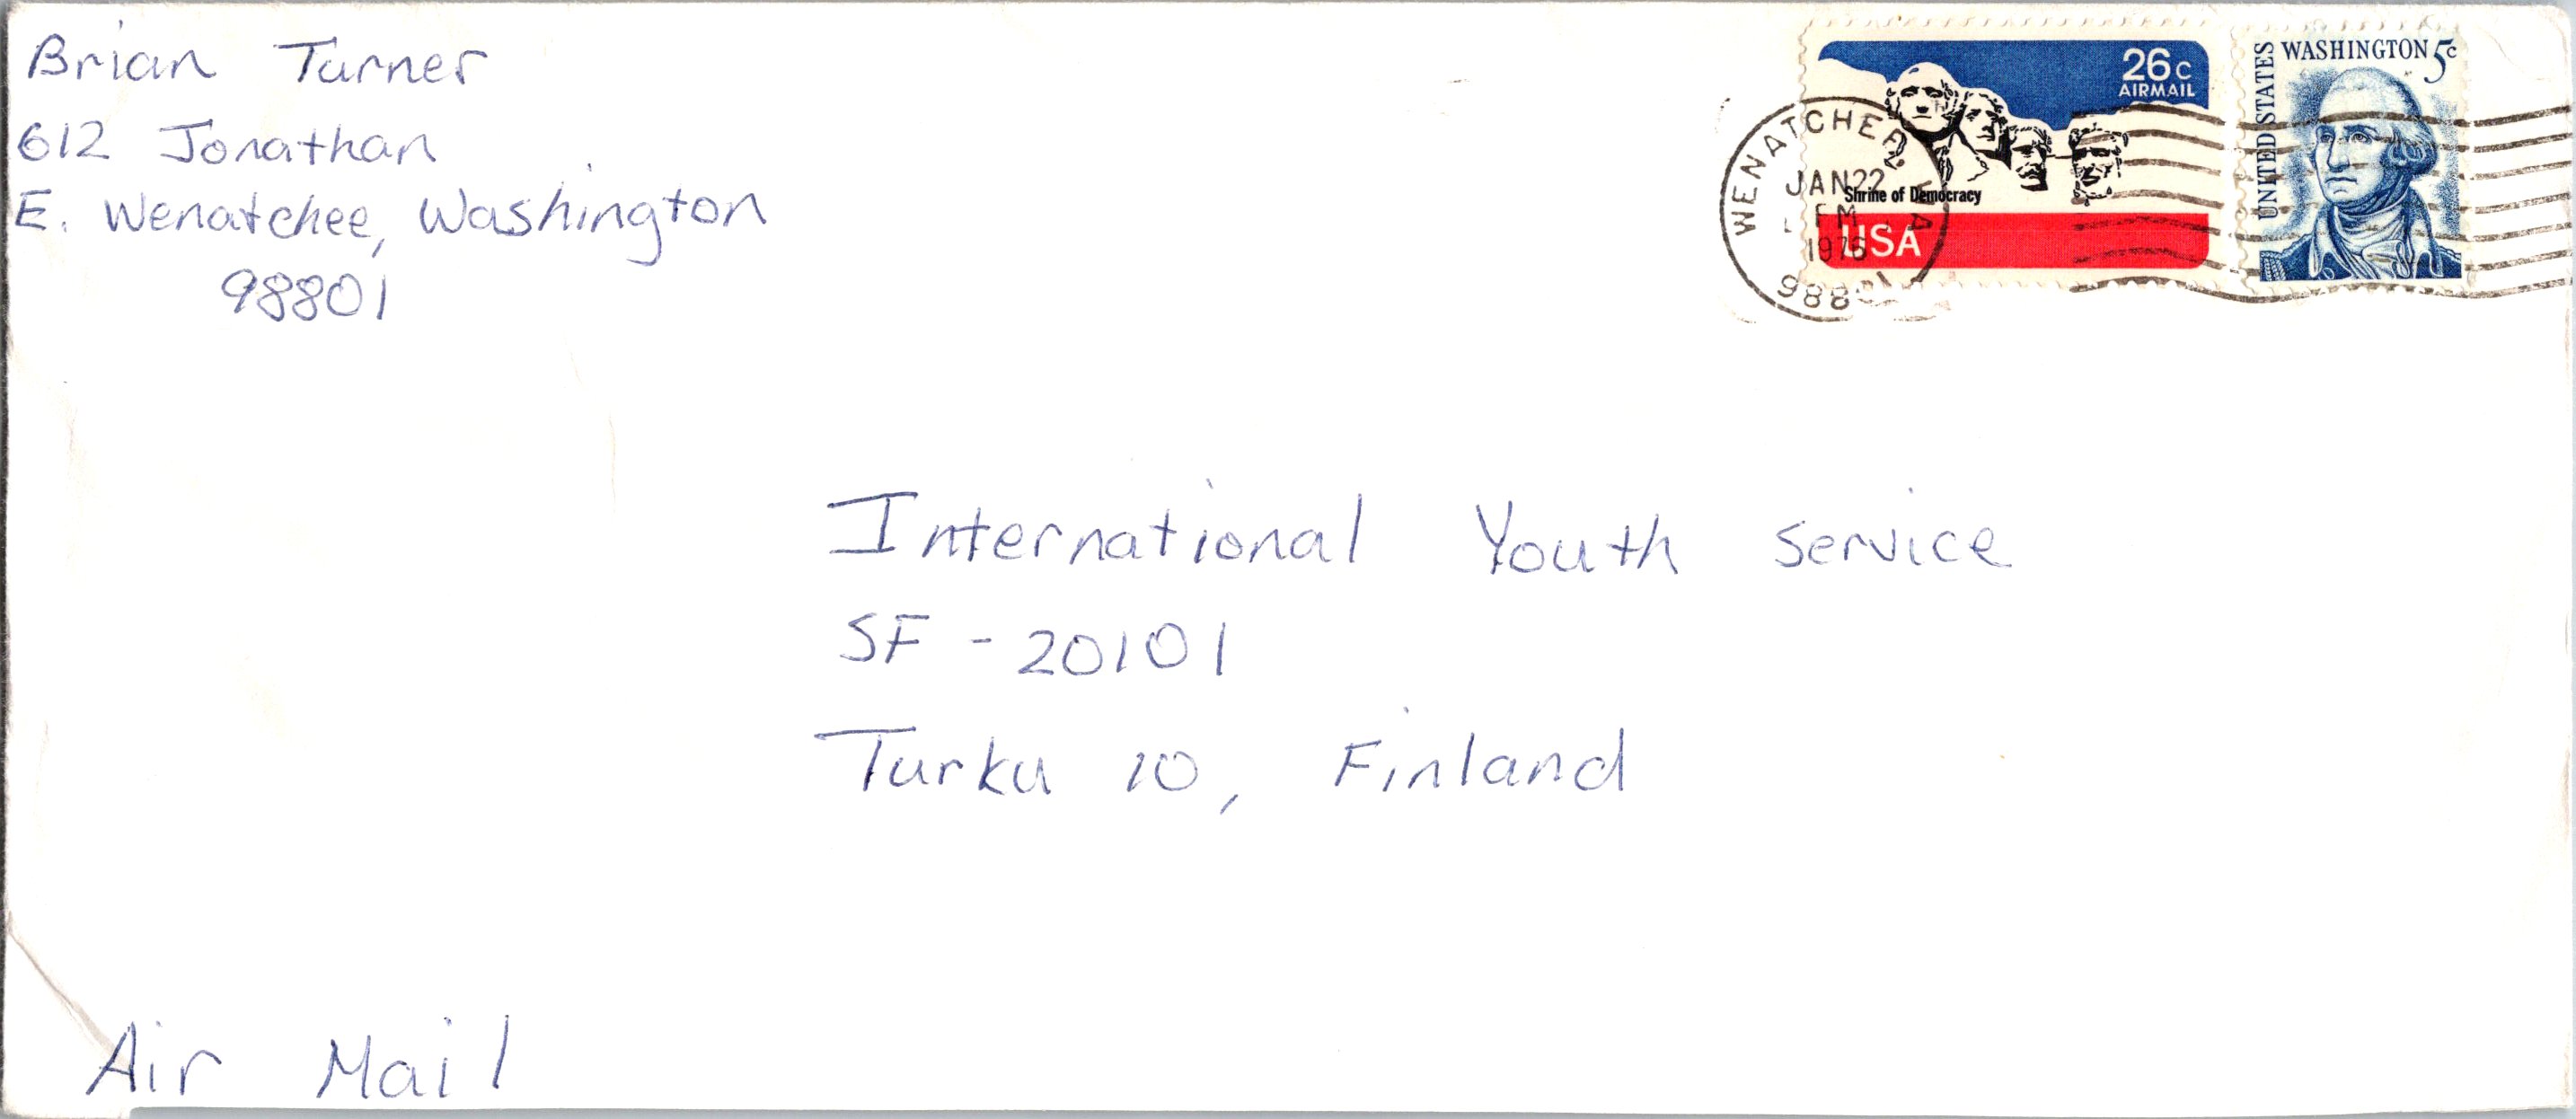 Brian Turner
612 Jonathan
E. Wenatchee, Washington
98801
26c
AIRMAIL
Shrine of Democracy
USA
UNITED STATES
WASHINGTON 5c
WENATCHEE, WA
JAN 22
PM
1976
98801
International Youth Service
SF - 20101
Turku 10, Finland
Air Mail